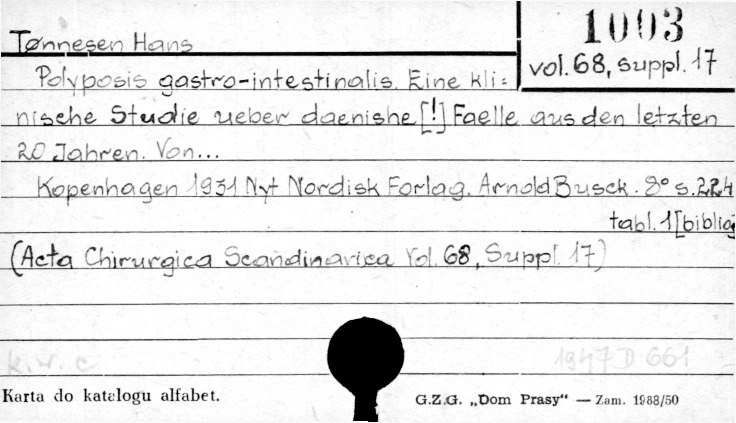 1003
vol. 68, suppl. 17
Tønnesen Hans
Polyposis gastro-intestinalis. Eine kli=
nische Studie ueber daenishe [!] Faelle aus den letzten
20 Jahren. Von...
Kopenhagen 1931 Nyt Nordisk Forlag. Arnold Busck. 8° s. 224
tabl. 1 [bibliog
(Acta Chirurgica Scandinavica Vol. 68, Suppl. 17)
k. w. c
1947 D 661
Karta do katalogu alfabet.
G.Z.G. „Dom Prasy“ — Zam. 1988/50